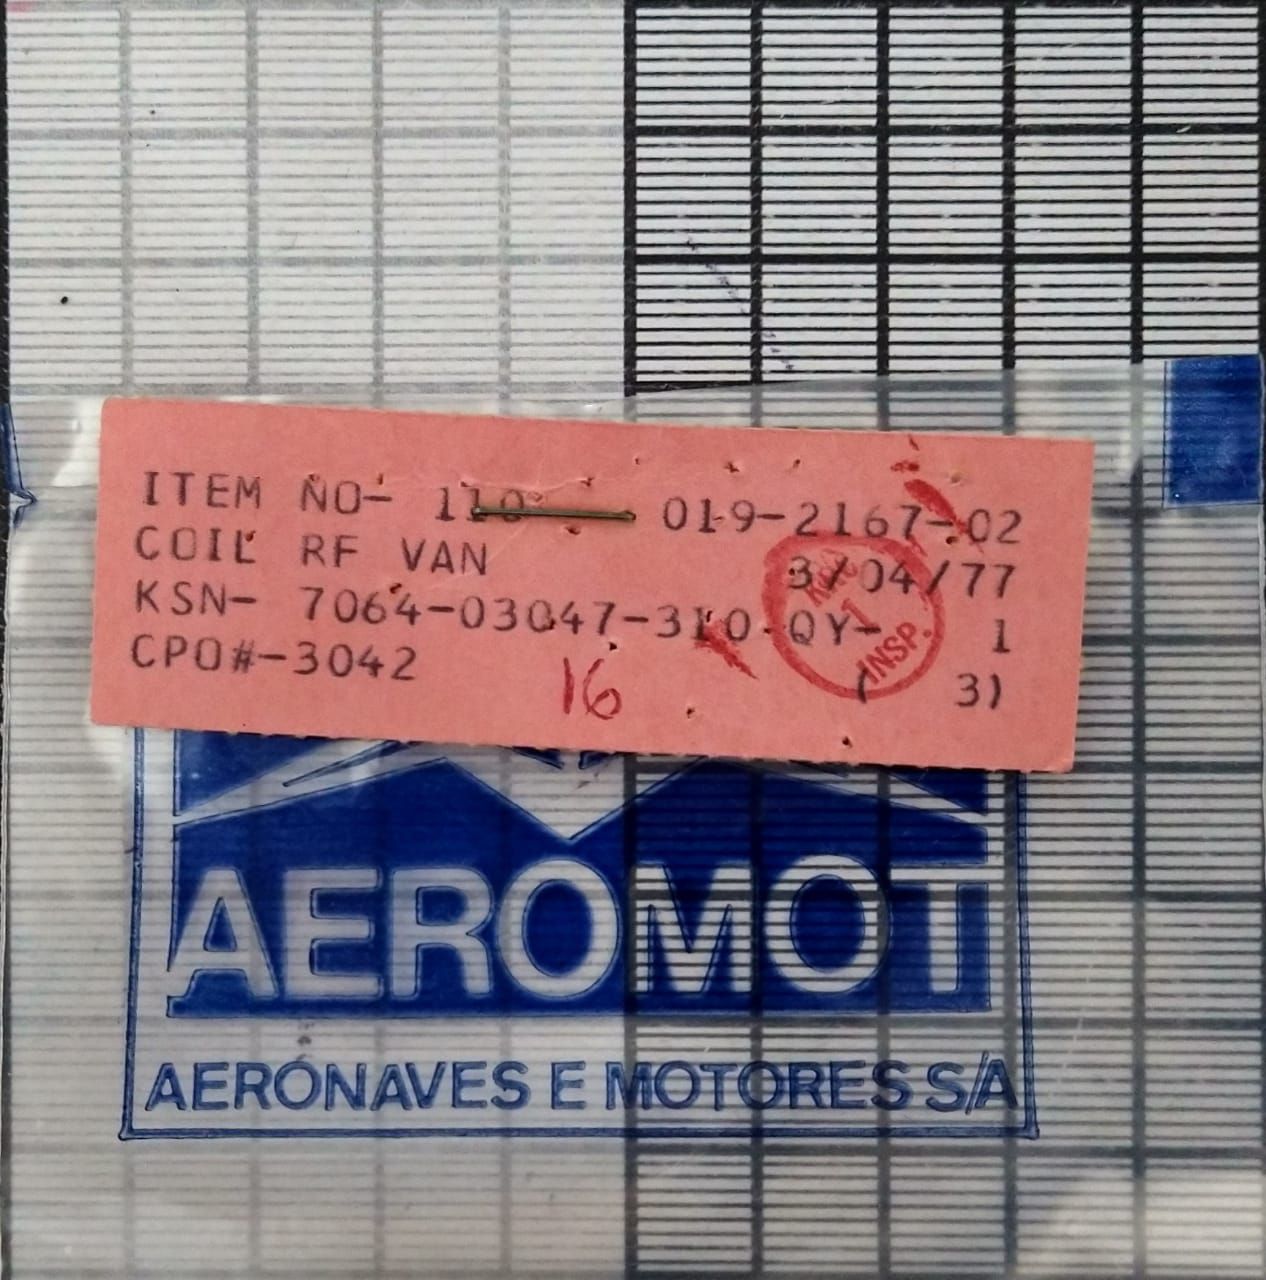 ITEM NO- 110 019-2167-02
COIL RF VAN 3/04/77
KSN- 7064-03047-310 QY- 1
CPO#-3042 ( 3)
16
1
INSP.
AEROMOT
AERONAVES E MOTORES S/A